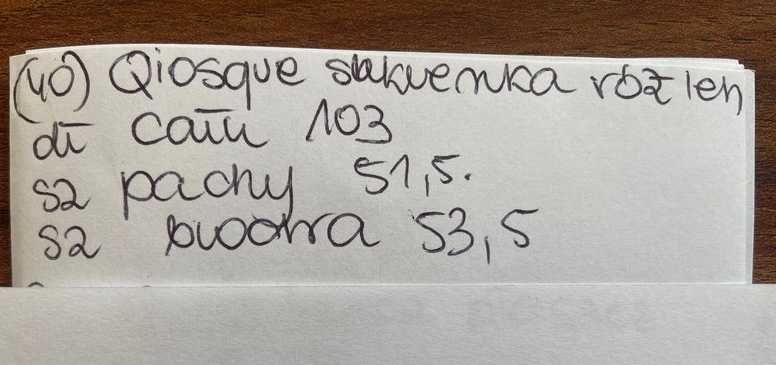 (40) Qiosque sukienka róż len
dł cału 103
sz pachy 51,5.
sz biodra 53,5